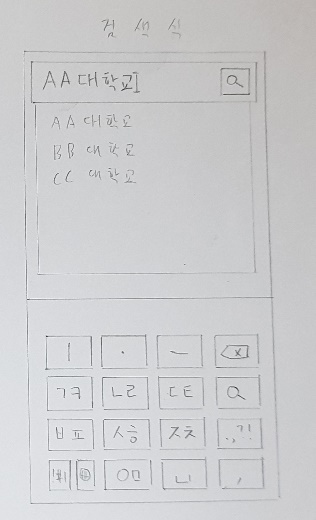 검 색 식
AA대학교
AA대학교
BB 대학교
CC 대학교
ㅣ · ㅡ
ㄱㅋ ㄴㄹ ㄷㅌ
ㅂㅍ ㅅㅎ ㅈㅊ .,?!
ㅇㅁ ,